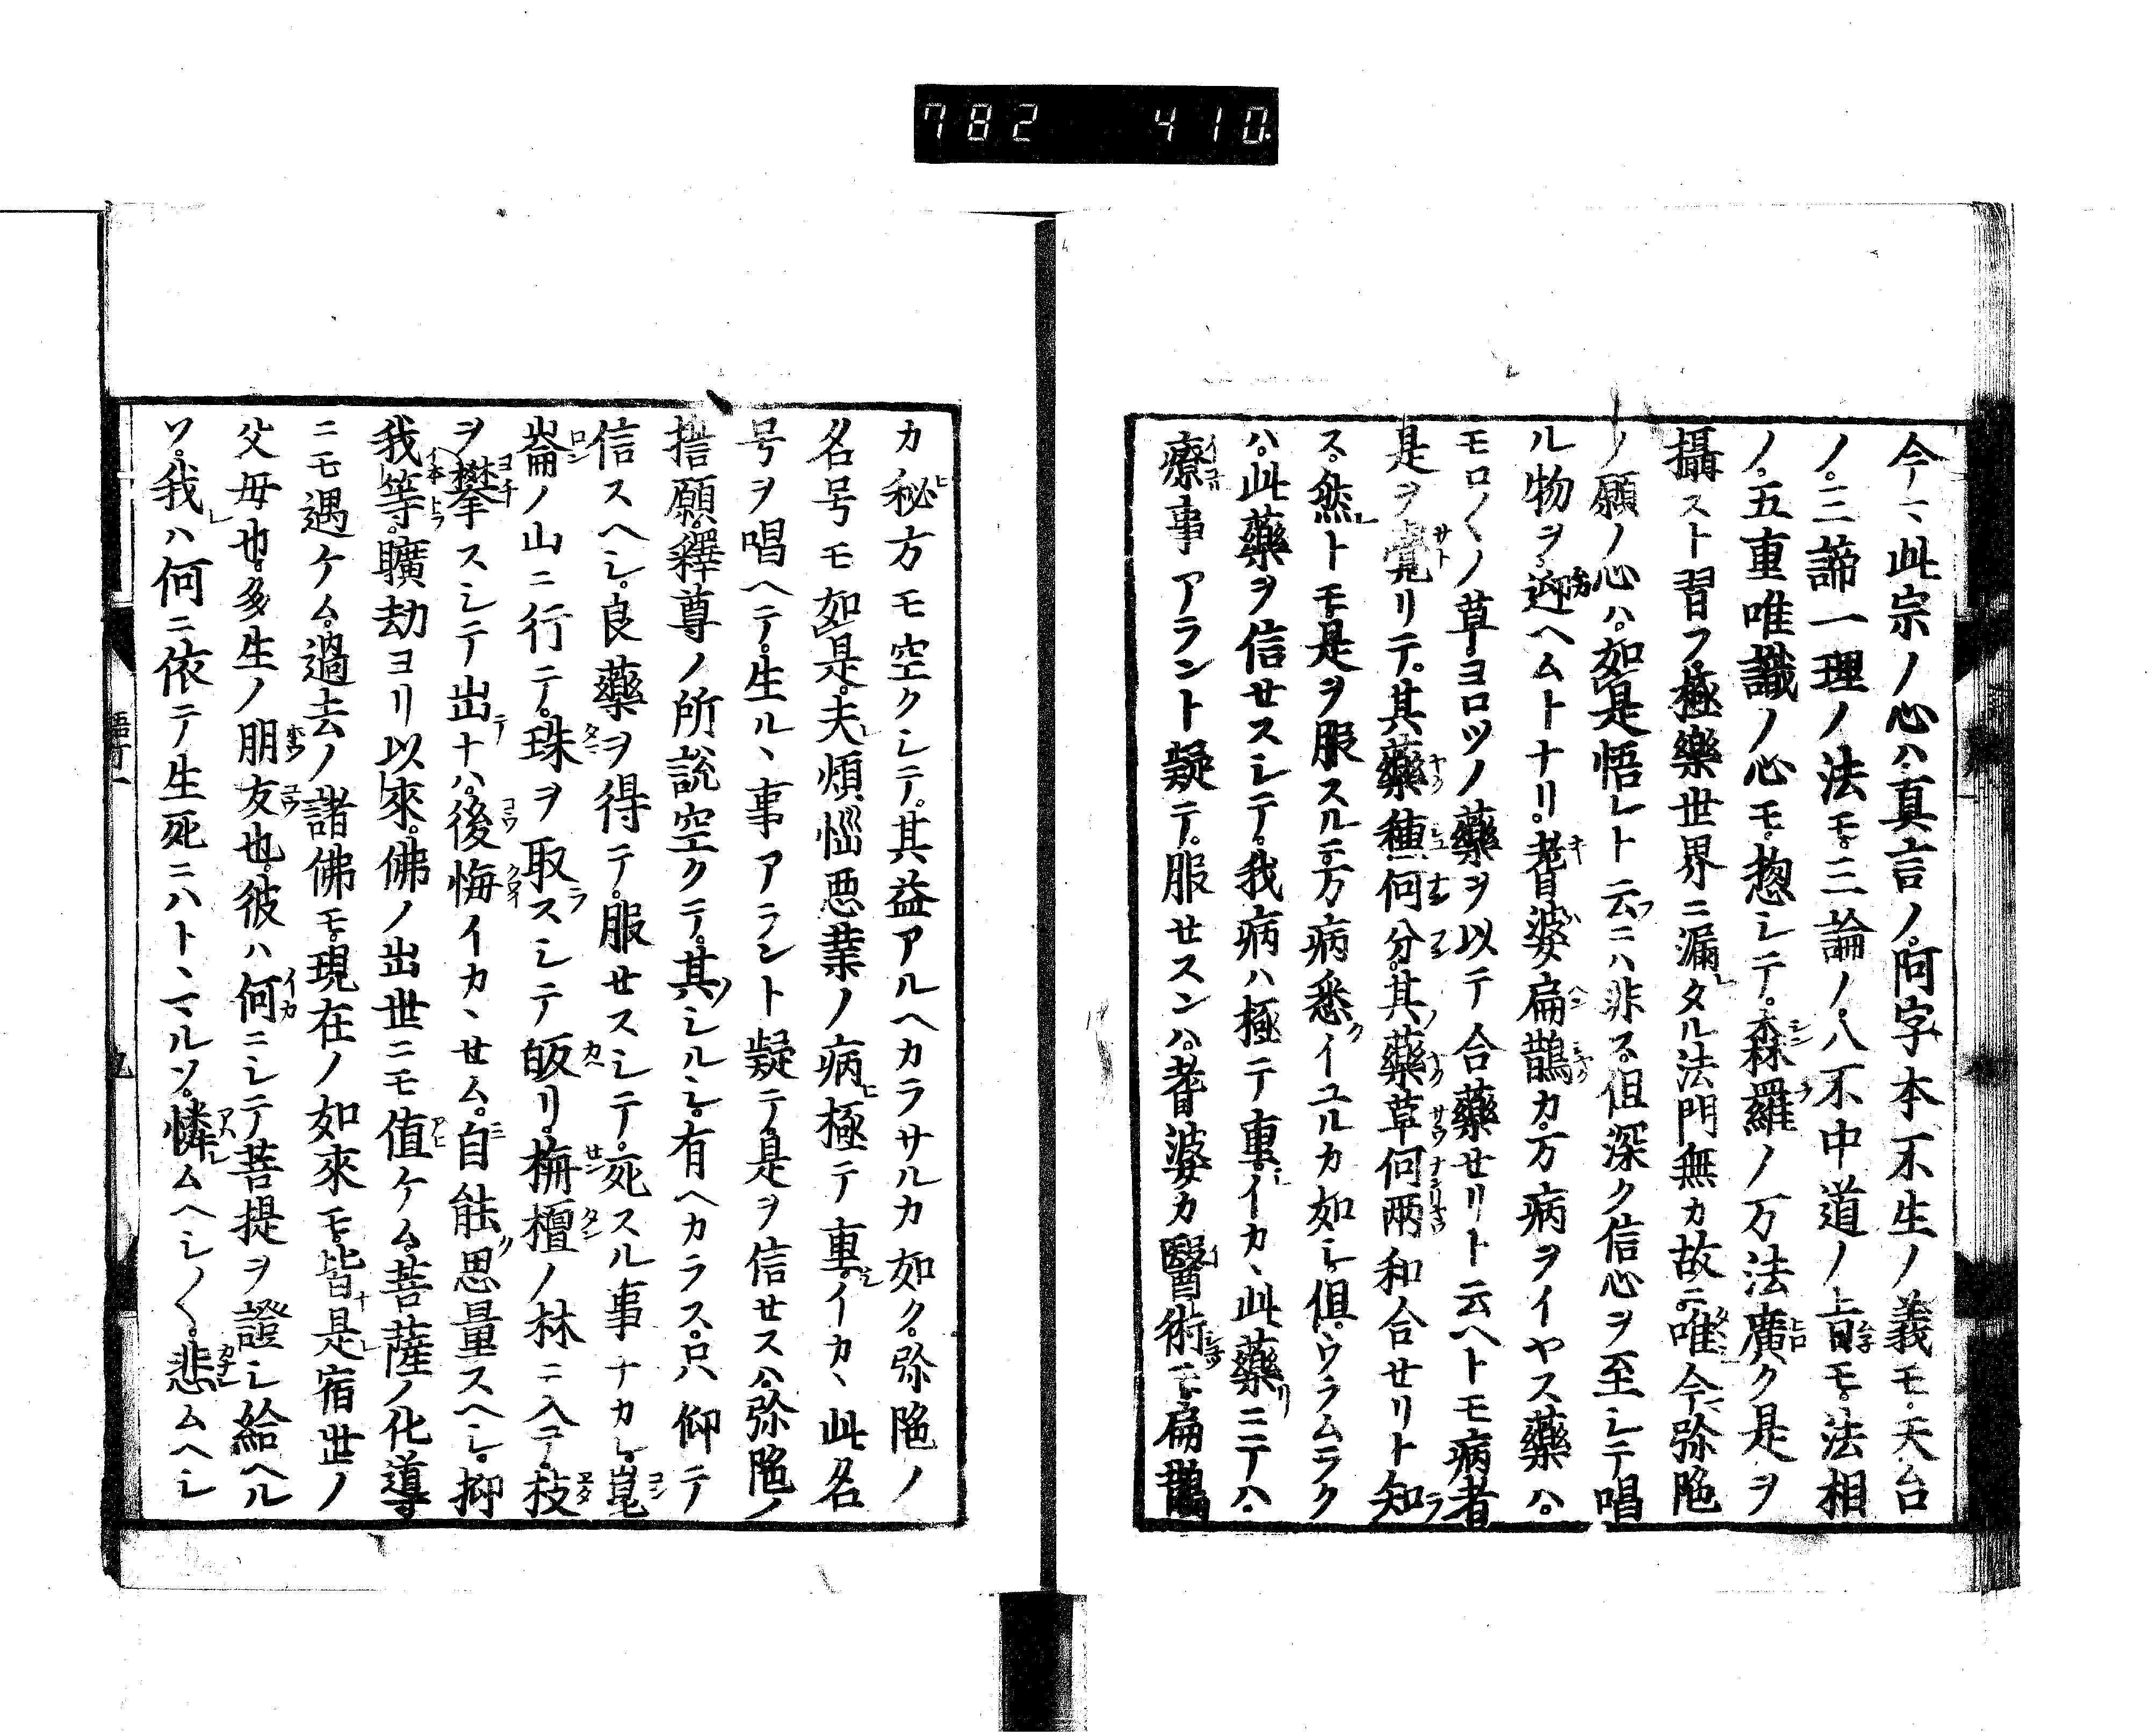 782 410
今ハ、此宗ノ心ハ。真言ノ。阿字本不生ノ義モ。天台
ノ。三諦一理ノ法モ。三論ノ。八不中道ノ旨モ。法相
ノ。五重唯識ノ心モ。惣シテ。森羅ノ万法廣ク是ヲ
攝スト習フ。極樂世界ニ漏タル法門無カ故ニ。唯今弥陁
ノ願ノ心ハ。如是悟レト云ニハ非ス。但深ク信心ヲ至シテ唱
ル物ヲ迎ヘムトナリ。耆婆扁鵲カ。万病ヲイヤス藥ハ。
モロ〱ノ草。ヨロツノ藥ヲ以テ合藥セリト云ヘトモ病者
是ヲ覺リテ。其藥種何分。其藥草何兩和合セリト知
ス。然トモ。是ヲ服スルニ。万病悉イユルカ如シ。但。ウラムラク
ハ。此藥ヲ信セスシテ。我病ハ極テ重。イカヽ此藥ニテハ。
療事アラント疑テ。服セスンハ。耆婆カ醫術モ。扁鵲
カ秘方モ空クシテ。其益アルヘカラサルカ如ク。弥陁ノ
名号モ如是。夫煩惱悪業ノ病極テ重。イカヽ此名
号ヲ唱ヘテ。生ルヽ事アラント疑テ。是ヲ信セスハ。弥陁ノ
誓願。釋尊ノ所説空クテ。其シルシ。有ヘカラス。只仰テ
信スヘシ。良藥ヲ得テ。服セスシテ。死スル事ナカレ。崑
崙ノ山ニ行テ。珠ヲ取スシテ皈リ。栴檀ノ林ニ入テ。枝
ヲ攀スシテ出ナハ。後悔イカヽセム。自能思量スヘシ。抑
我等。曠劫ヨリ以來。佛ノ出世ニモ値ケム。菩薩ノ化導
ニモ遇ケム。過去ノ諸佛モ。現在ノ如來モ。皆是宿世ノ
父母也。多生ノ朋友也。彼ハ何ニシテ菩提ヲ證シ給ヘル
ソ。我ハ何ニ依テ生死ニハトヽマルソ。憐ムヘシ〱。悲ムヘシ